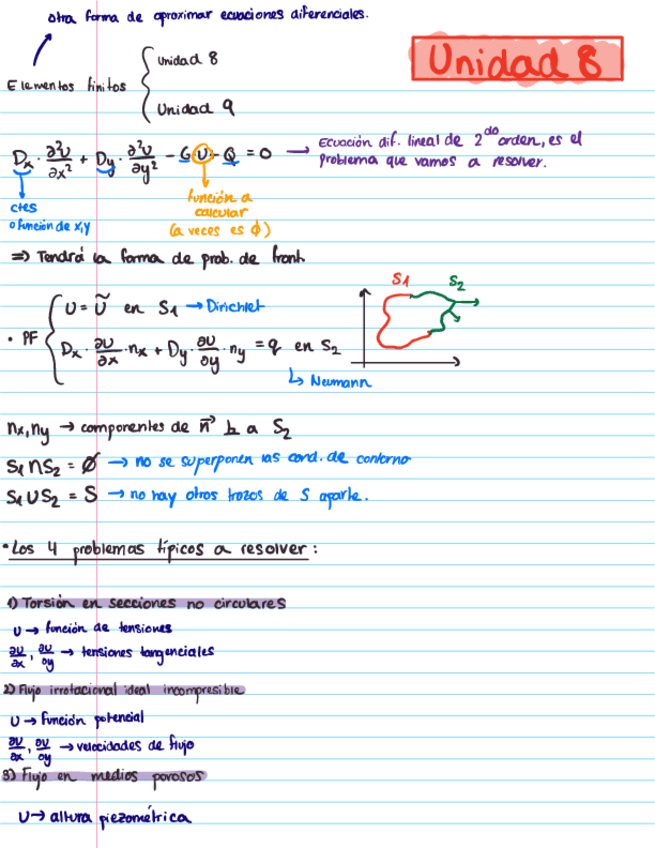 otra forma de aproximar ecuaciones diferenciales.
Unidad 8
Elementos finitos { Unidad 8
Unidad 9
Dx · ∂²U/∂x² + Dy · ∂²U/∂y² - GU - Q = 0 → Ecuación dif. lineal de 2do orden, es el
problema que vamos a resolver.
ctes
o función de x,y
función a
calcular
(a veces es ϕ)
⇒ Tendrá la forma de prob. de front.
• PF { U = Ũ en S1 → Dirichlet
Dx · ∂U/∂x · nx + Dy · ∂U/∂y · ny = q en S2
↳ Neumann
S1 S2
nx, ny → componentes de n⃗ ⊥ a S2
S1 ∩ S2 = ∅ → no se superponen las cond. de contorno
S1 ∪ S2 = S → no hay otros trozos de S aparte.
• Los 4 problemas típicos a resolver:
1) Torsión en secciones no circulares
U → función de tensiones
∂U/∂x, ∂U/∂y → tensiones tangenciales
2) Flujo irrotacional ideal incompresible
U → función potencial
∂U/∂x, ∂U/∂y → velocidades de flujo
3) Flujo en medios porosos
U → altura piezométrica